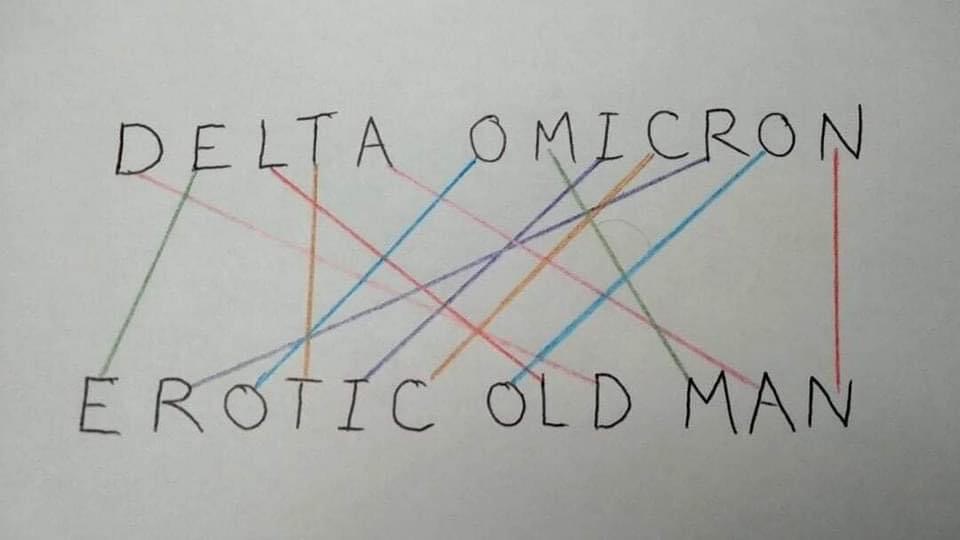 DELTA OMICRON
EROTIC OLD MAN